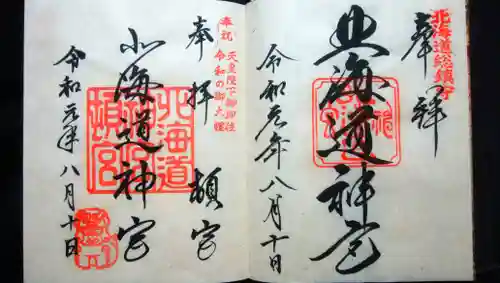 北海道総鎮守
奉拝
北海道神宮
令和元年八月十日
奉祝
天皇陛下御即位
令和の御大禮
奉拝
頓宮
北海道神宮
北海道
頓宮
令和元年八月十日